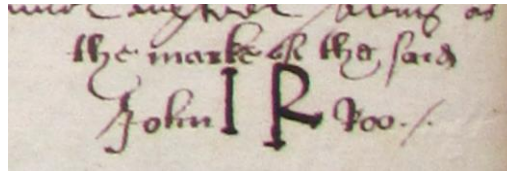 the marke of the said
John I R Roo./